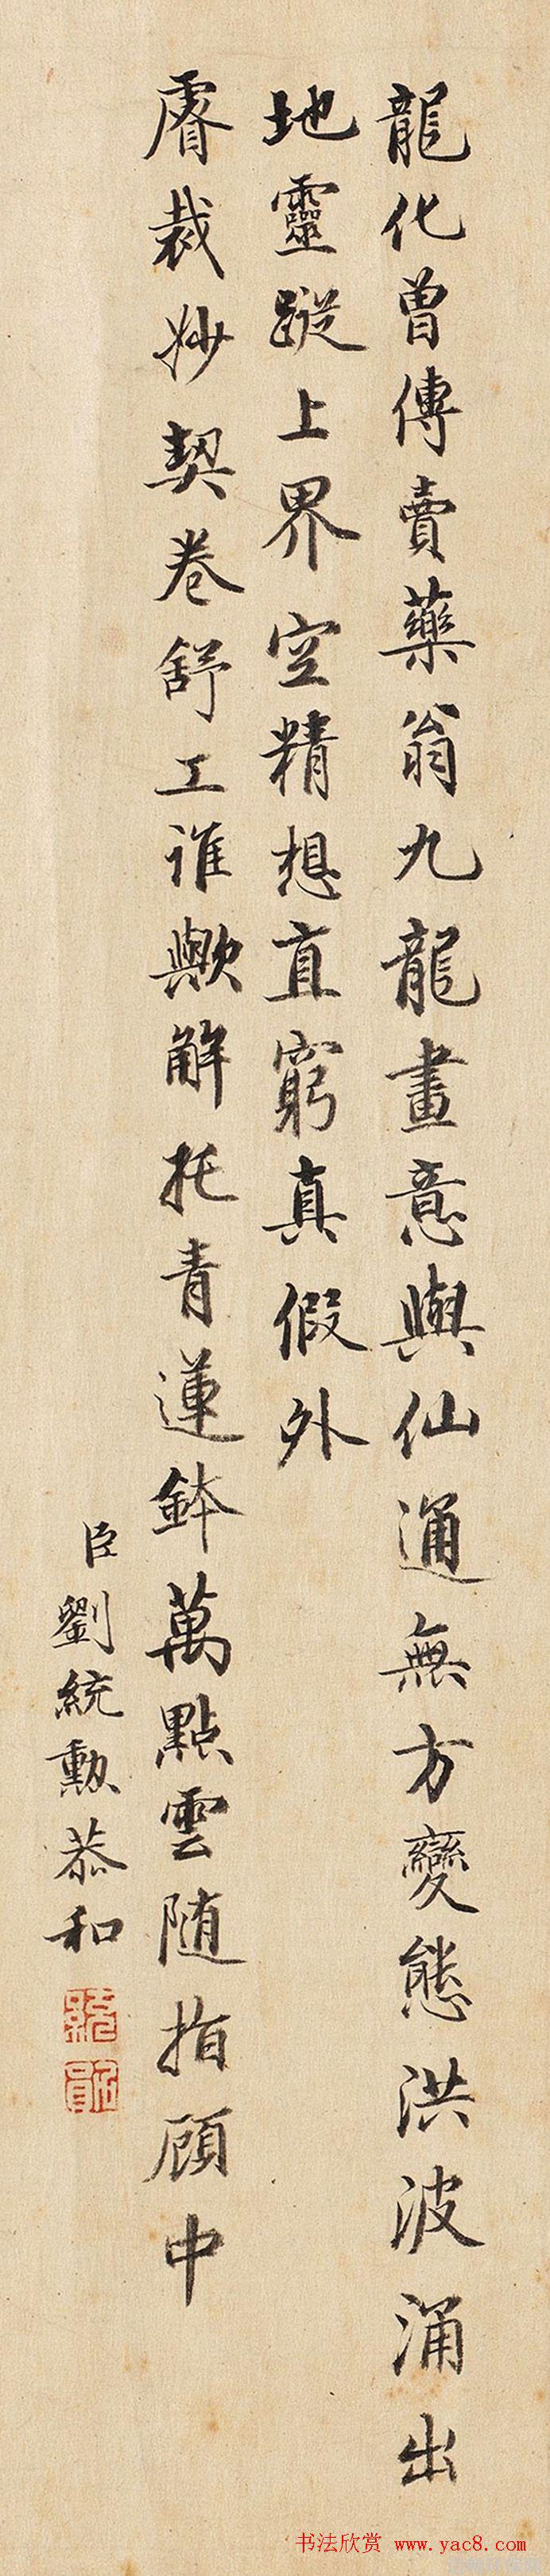 龍化曾傳賣藥翁九龍畫意與仙通無方變態洪波涌出
地靈蹤上界空精想直窮真假外
睿裁妙契卷舒工誰歟解托青蓮鉢萬點雲随指顧中
臣劉統勳恭和
書法欣赏 www.yac8.com